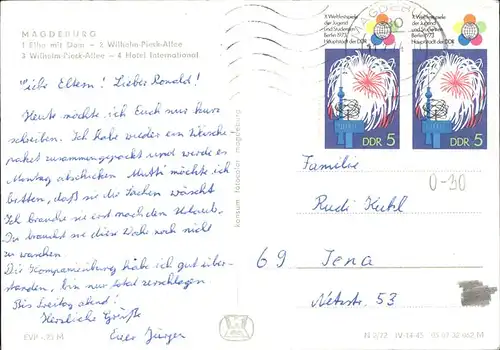 MAGDEBURG
1 Elbe mit Dom – 2 Wilhelm-Pieck-Allee
3 Wilhelm-Pieck-Allee – 4 Hotel International
Liebe Eltern! Lieber Ronald!
Heute möchte ich Euch nur kurz
schreiben. Ich habe wieder ein Wäsche-
paket zusammengepackt und werde es
Montag abschicken. Mutti möchte ich
bitten, daß sie die Sachen wäscht.
Ich brauche sie erst nach dem Urlaub.
Du brauchst sie diese Woche noch nicht
zu waschen.
Die habe ich gut über-
standen, bin nur total zerschlagen.
Bis Freitag abend!
Herzliche Grüße
Euer Jürgen
EVP -,25 M
konsum fotocolor magdeburg
X. Weltfestspiele
der Jugend
und Studenten
Berlin 1973
Hauptstadt der DDR
DDR 5
X. Weltfestspiele
der Jugend
und Studenten
Berlin 1973
Hauptstadt der DDR
DDR 5
MAGDEBURG
Familie
0-30
Rudi Kuhl
69 Jena
Netzstr. 53
IV-14-45 05 07 32 062 M